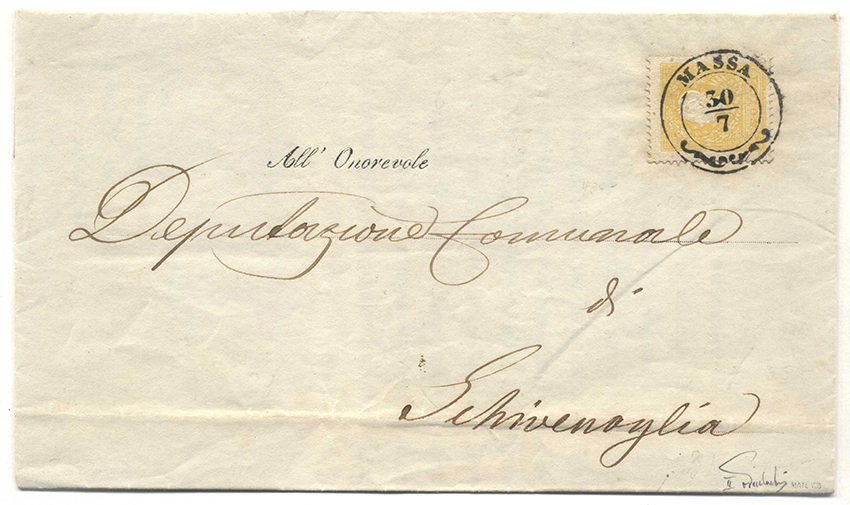 MASSA
30
7
All' Onorevole
Deputazione Comunale
di
Schivenoglia